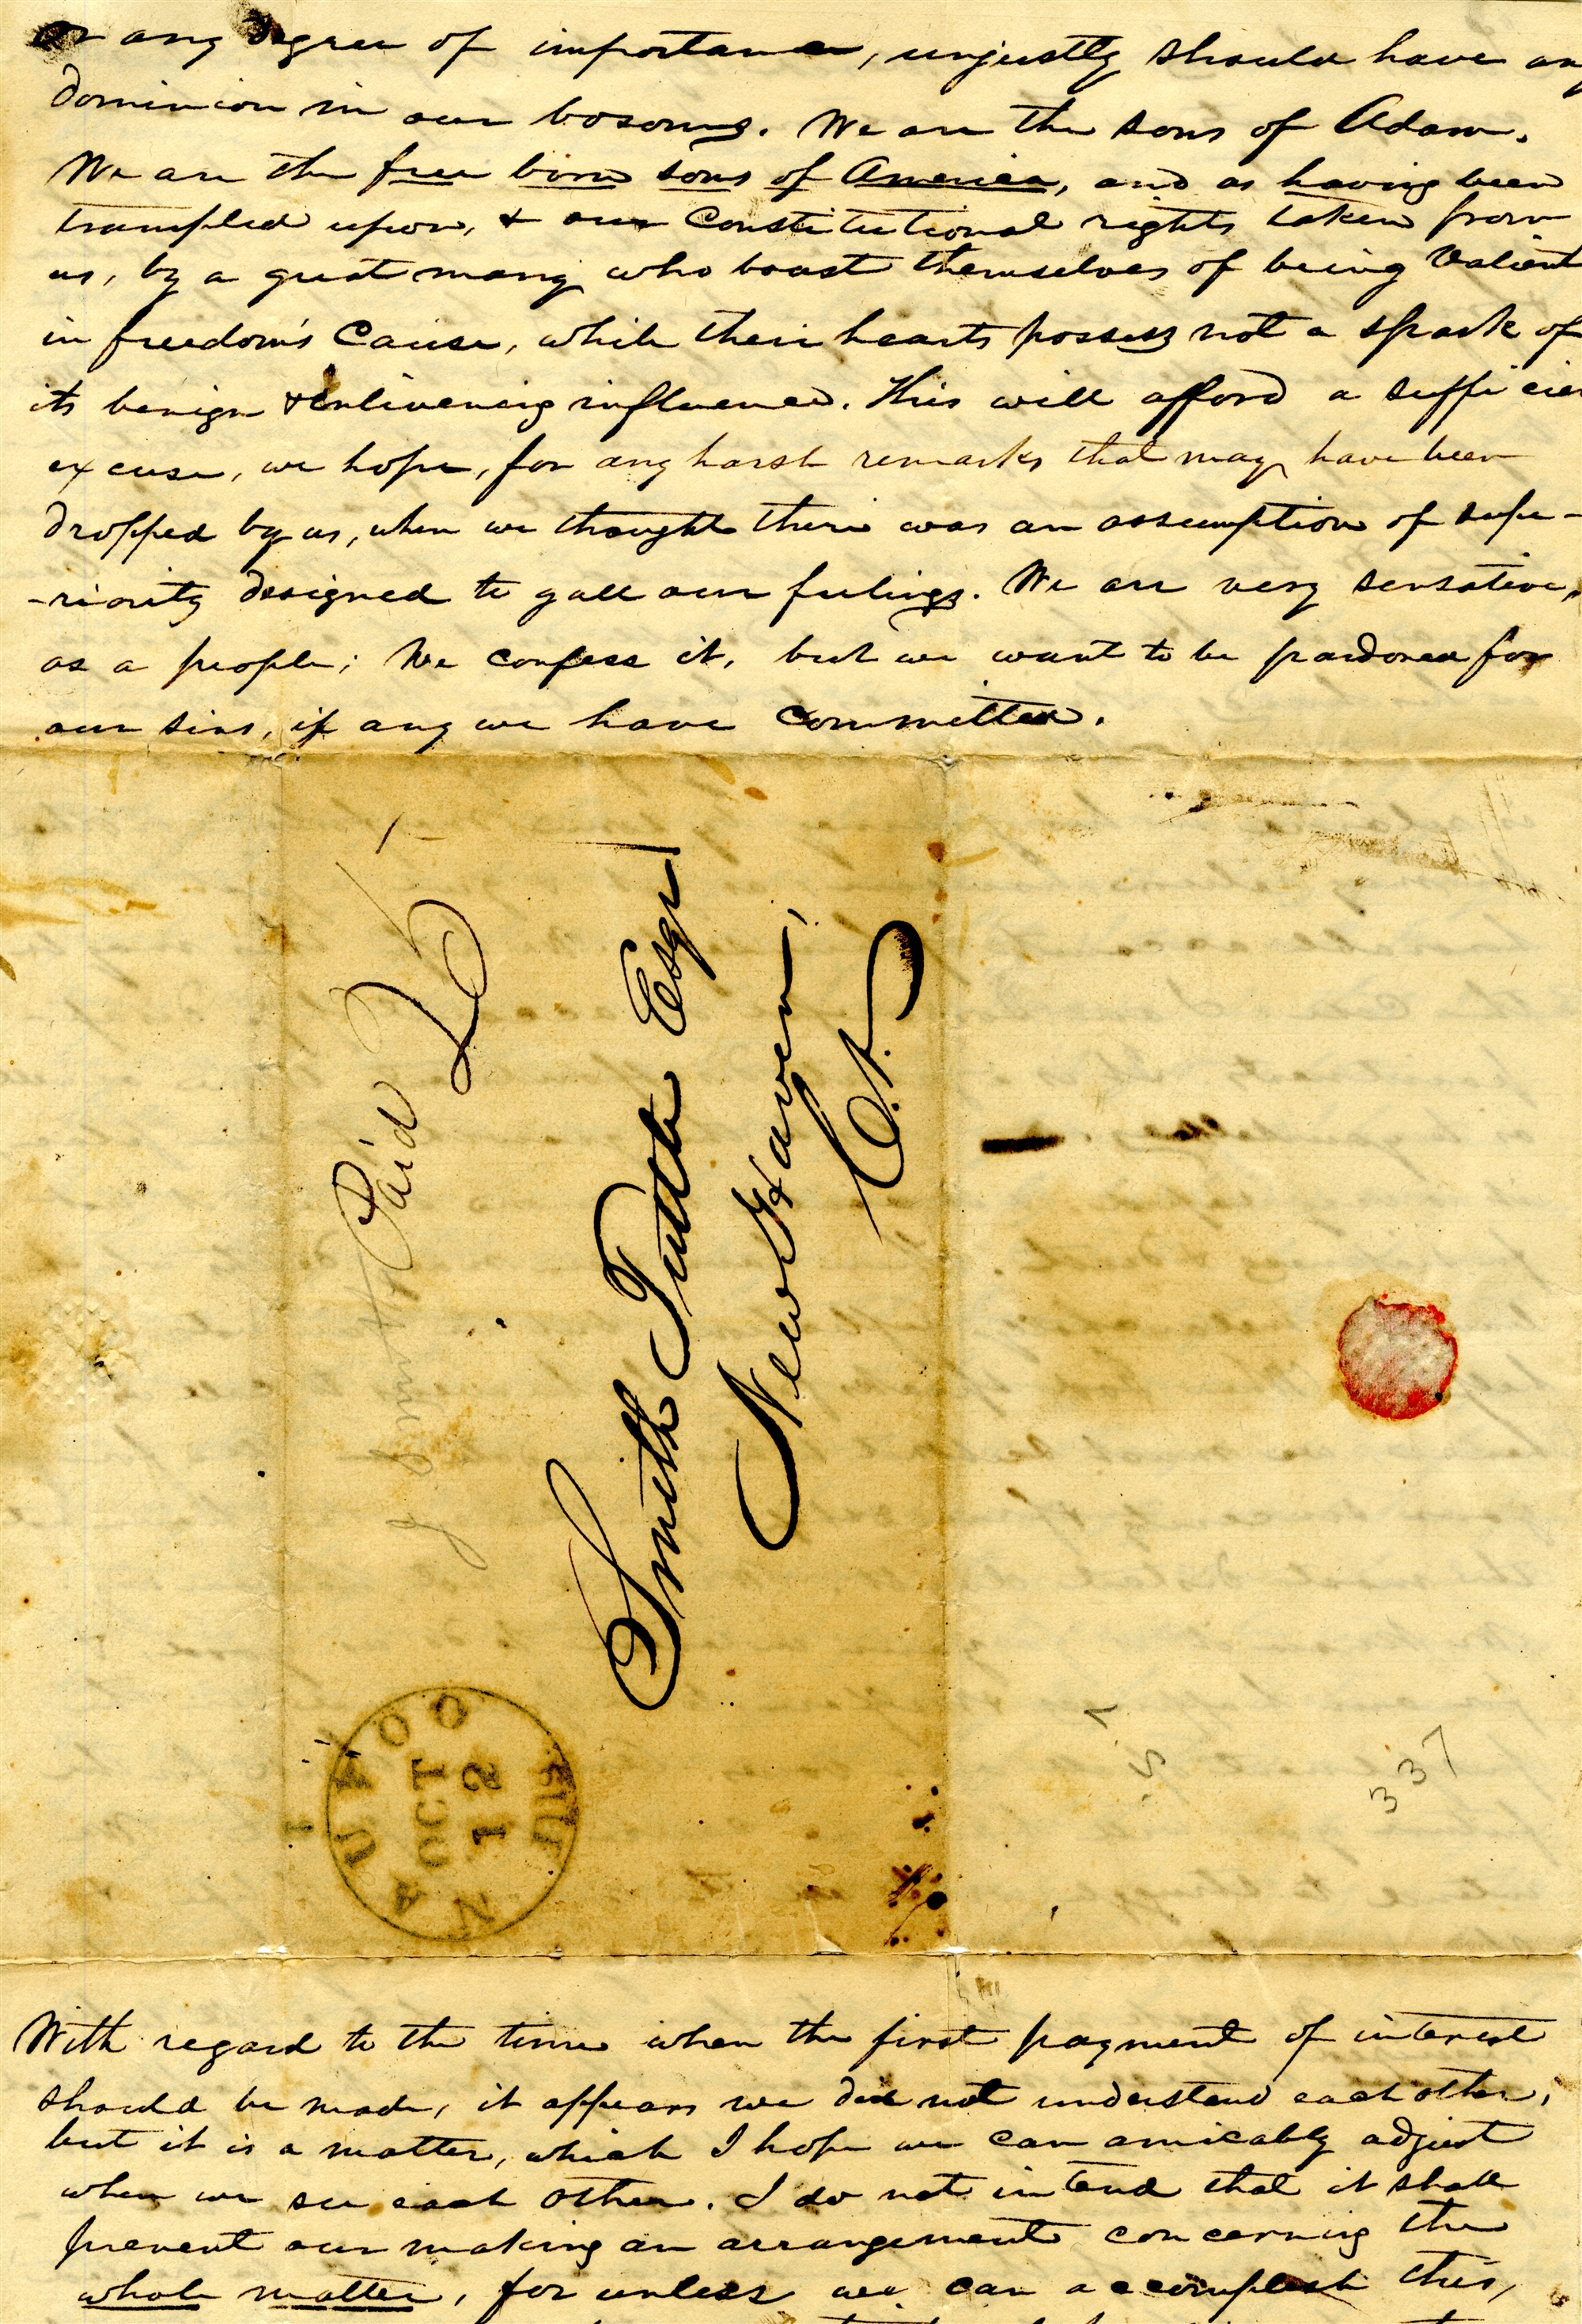 or any degree of importance, unjustly should have any
dominion in our bosoms. We are the sons of Adam.
We are the free born sons of America, and as having been
trampled upon, & our Constitutional rights taken from
us, by a great many who boast themselves of being Valient
in freedom's Cause, while their hearts possess not a spark of
its benign & enlivening influence. This will afford a suffi cien
excuse, we hope, for any harsh remarks that may have been
dropped by us, when we thought there was an assumption of supe-
-riority designed to gall our feelings. We are very sensative,
as a people; We confess it, but we want to be pardoned for
our sins, if any we have committed.
Paid 25
Smith Tuttle Esqr
New Haven,
Ct.
NAUVOO
OCT
12
ILLS
337
With regard to the time when the first payment of interest
should be made, it appears we did not understand each other,
but it is a matter, which I hope we can amicably adjust
when we see each other. I do not intend that it shall
prevent our making an arrangement concerning the
whole matter, for unless we can accomplish this,